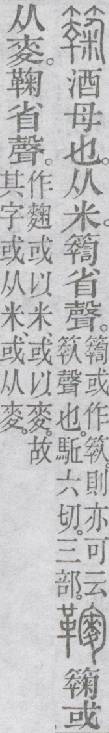 酒母也。从米。𥷚省聲。
𥷚或作。則亦可云
聲也。駈六切。三部。
𥶶或
从麥。鞠省聲。
作麴或以米或以麥。故
其字或从米或从麥。